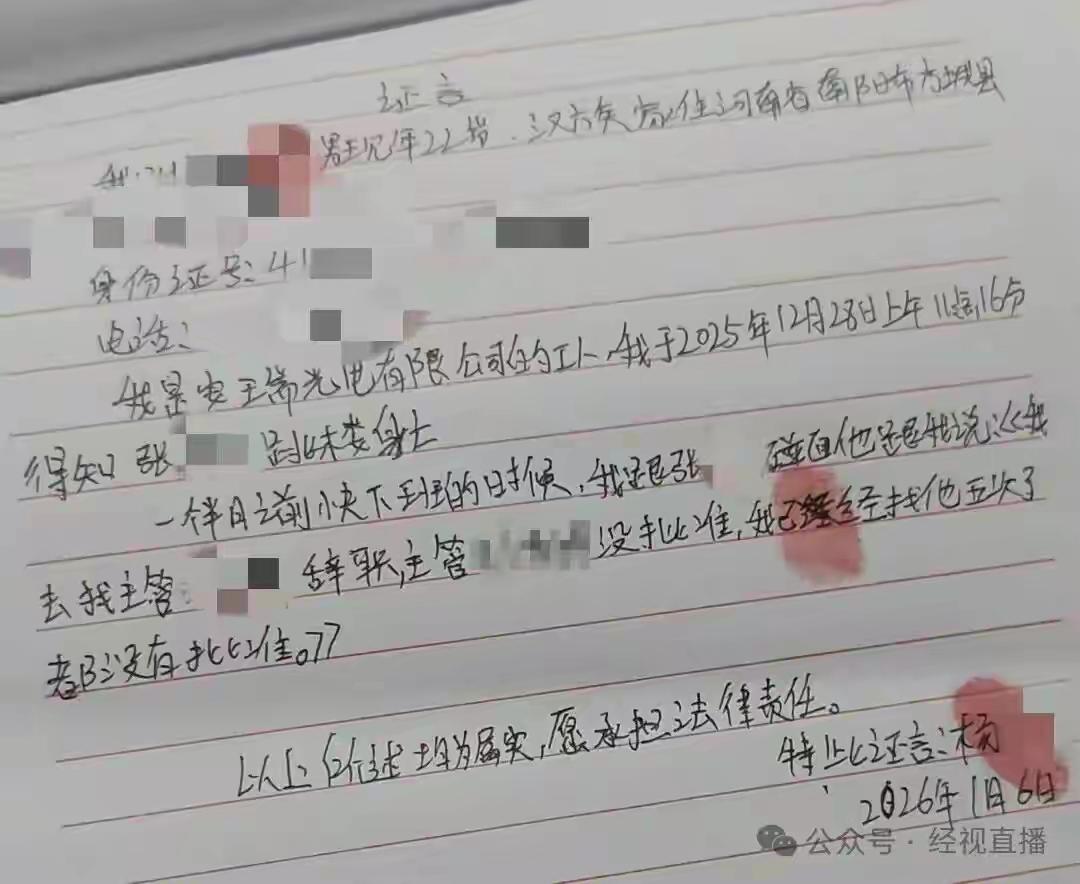 证言
我叫 男 现年22岁.汉族 家住河南省南阳市方城县
身份证号:41
电话:
我是安 光电有限公司的工人,我于2025年12月28日上午11点16分
得知 张 跳楼 身亡
一个半月之前 下班的时候,我跟张 碰面他跟我说:《我
去找主管 辞职,主管 没批准,我已经找他五次了
都没有批准。》
以上 述均为属实,愿承担法律责任。
特此证言:杨
2026年1月6日
公众号·经视直播